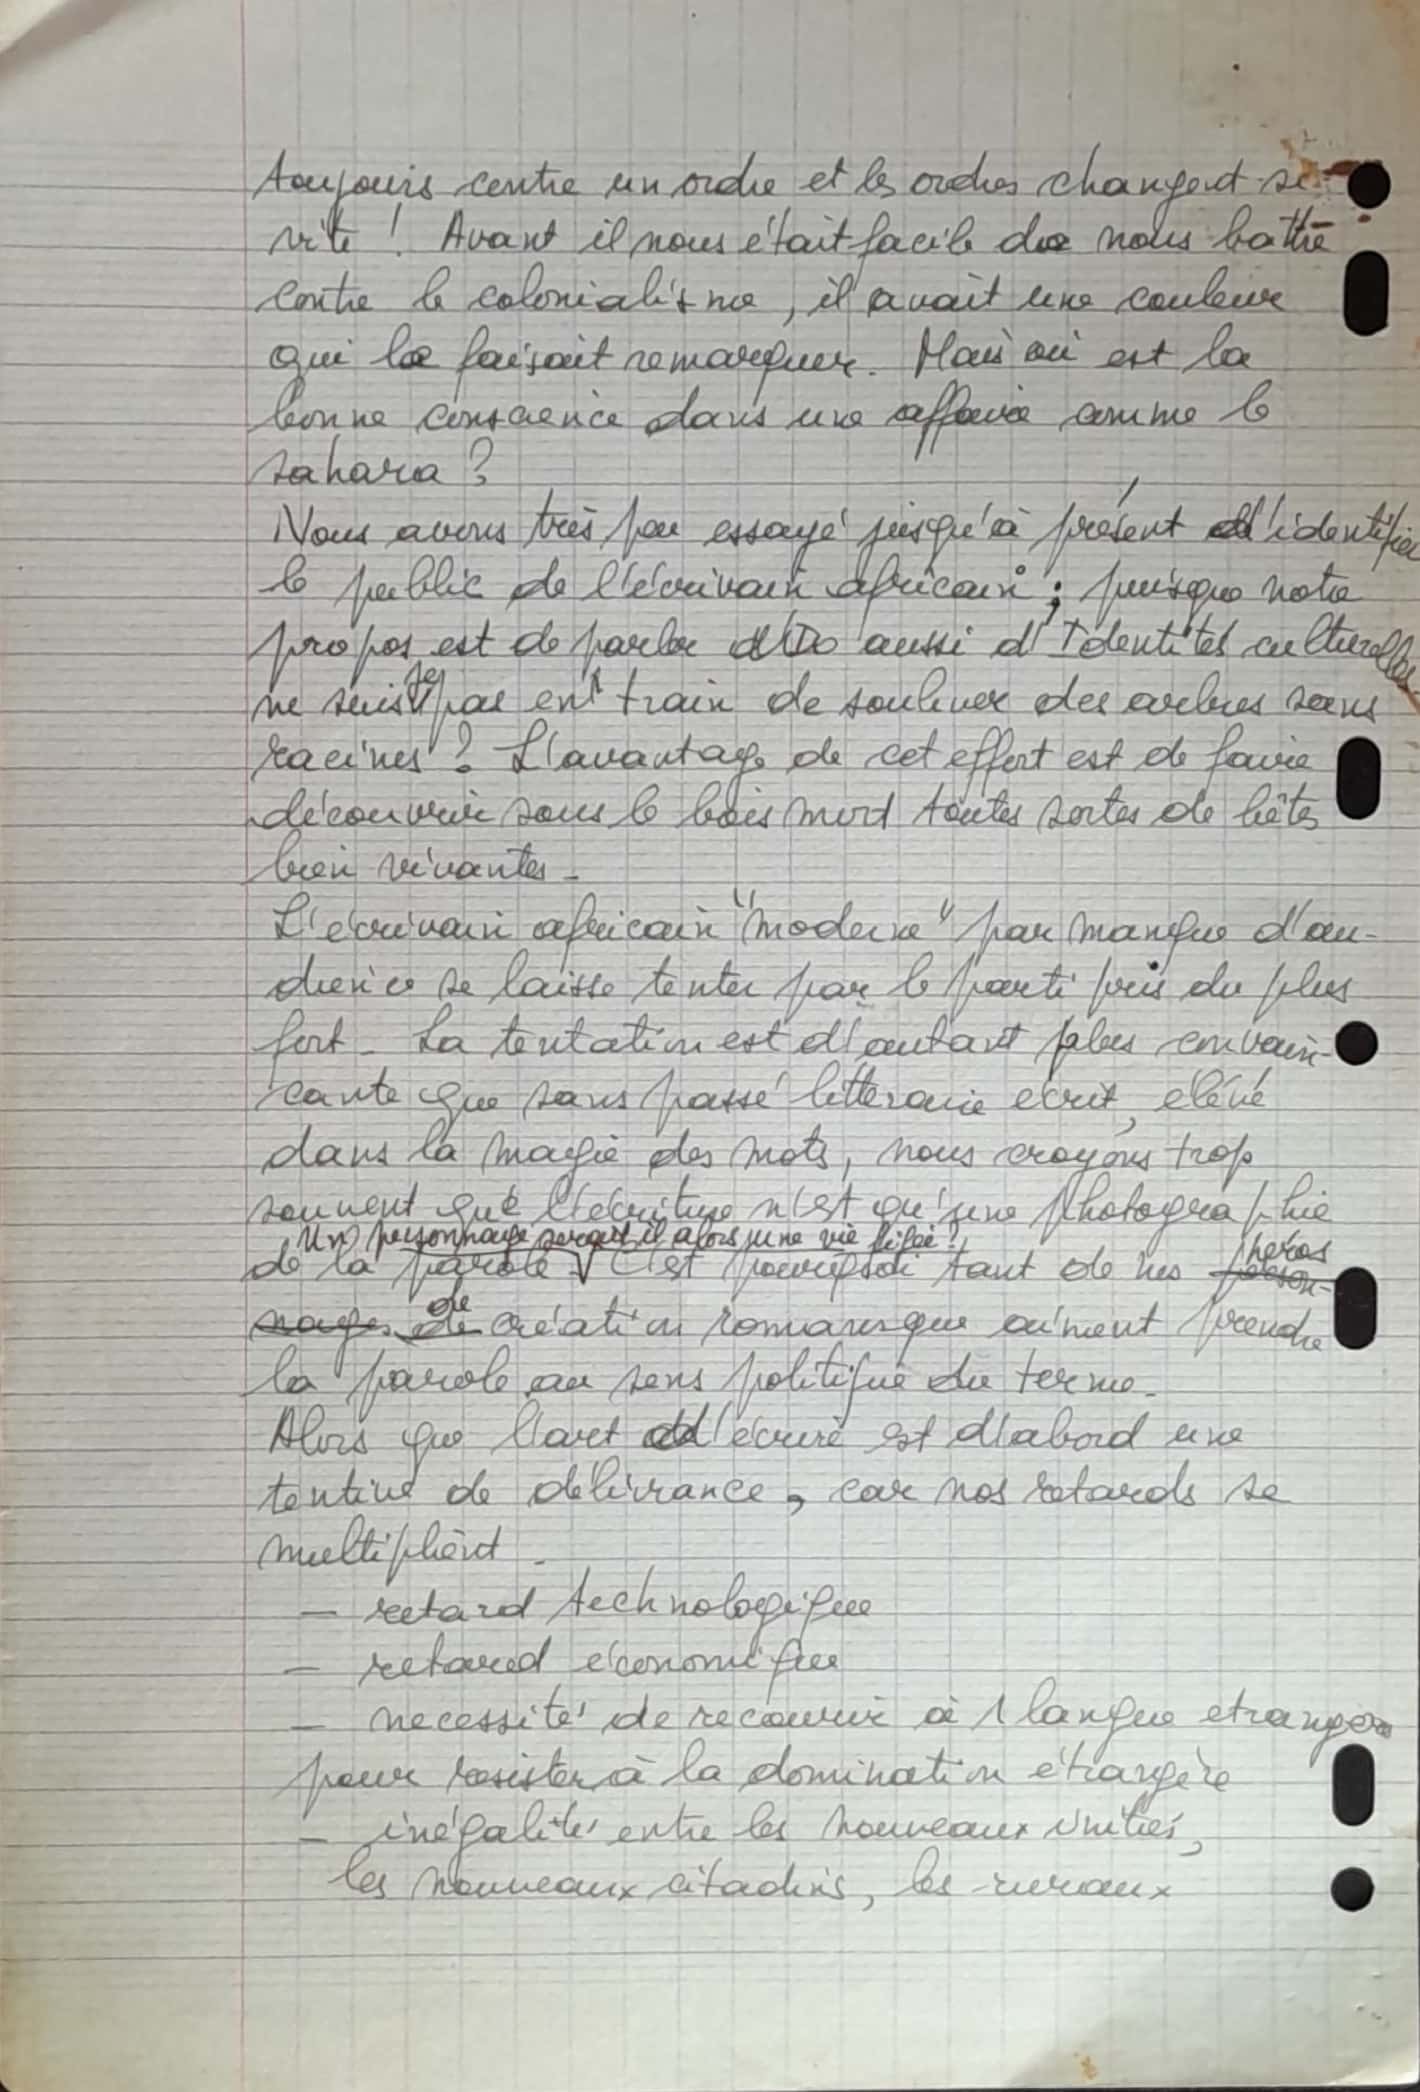 toujours contre un ordre et les ordres changent si
vite ! Avant il nous était facile de nous battre
contre le colonialisme, il avait une couleur
qui le faisait remarquer. Mais où est la
bonne conscience dans une affaire comme le
sahara ?
Nous avons très peu essayé jusqu'à présent d'identifier
le public de l'écrivain africain ; puisque notre
propos est de parler aussi d'Identités culturelles
ne suis je pas en train de soulever des arbres sans
racines ? L'avantage de cet effort est de faire
découvrir sous le bois mort toutes sortes de bêtes
bien vivantes -
L'écrivain africain "moderne" par manque d'au-
dience se laisse tenter par le parti pris du plus
fort - La tentation est d'autant plus convain-
cante que sans passé litteraire ecrit, élévé
dans la magie des mots, nous croyons trop
souvent que l'écriture n'est qu'une photographie
Un personnage serait il alors une vie figée ?
de la parole - C'est pourquoi tant de nos person- héros
nages de de création romanesque aiment prendre
la parole au sens politique du terme -
Alors que l'art d'écrire est d'abord une
tentive de délivrance, car nos retards se
multiplient -
- retard technologique
- retard économique
- necessité de recourir à 1 langue etrangere
pour resister à la domination étrangère
- inégalités entre les nouveaux initiés,
les nouveaux citadins, les ruraux